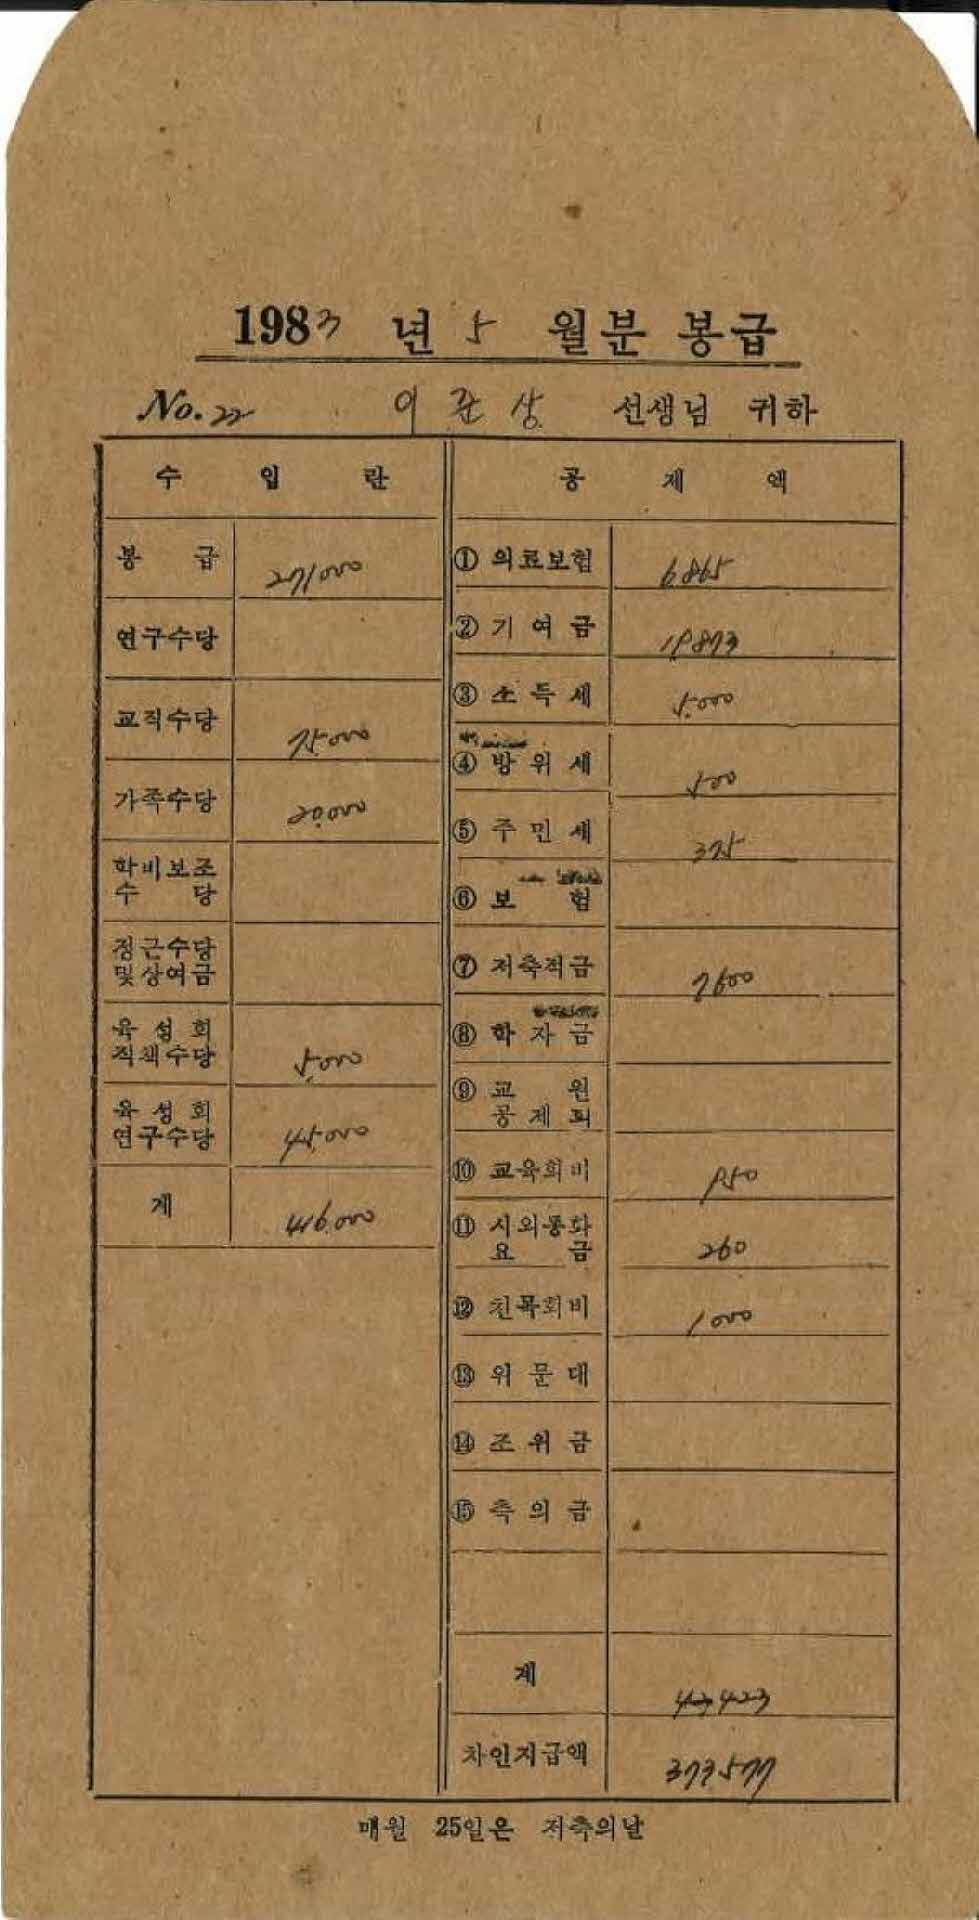 1983 년 5 월분 봉급
No. 22 이 준 상 선생님 귀하
수 입 란
봉 급 271,000
연구수당
교직수당 75,000
가족수당 20,000
학비보조
수 당
정근수당
및상여금
육 성 회
직책수당 5,000
육 성 회
연구수당 45,000
계 416,000
공 제 액
① 의료보험 6865
② 기 여 금 19,873
③ 소 득 세 5,000
④ 방 위 세 500
⑤ 주 민 세 375
⑥ 보 험
⑦ 저축적금 7600
⑧ 학 자 금
⑨ 교 원
공 제 회
⑩ 교육회비 950
⑪ 시외통화
요 금 260
⑫ 친목회비 1000
⑬ 위 문 대
⑭ 조 위 금
⑮ 축 의 금
계 42423
차인지급액 373577
매월 25일은 저축의날